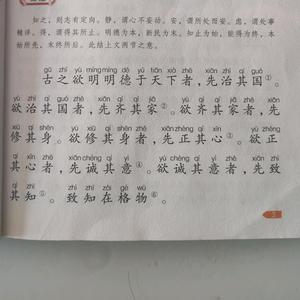 知之，则志有定向。静，谓心不妄动。安，谓所处而安。虑，谓处事
精详。得，谓得其所止。明德为本，新民为末。知止为始，能得为终。本
始所先，末终所后。此结上文两节之意。
gǔ zhī yù míng míng dé yú tiān xià zhě xiān zhì qí guó
古之欲明明德于天下者，先治其国①。
yù zhì qí guó zhě xiān qí qí jiā yù qí qí jiā zhě xiān
欲治其国者，先齐其家②。欲齐其家者，先
xiū qí shēn yù xiū qí shēn zhě xiān zhèng qí xīn yù zhèng
修其身。欲修其身者，先正其心③。欲正
qí xīn zhě xiān chéng qí yì yù chéng qí yì zhě xiān zhì
其心者，先诚其意④。欲诚其意者，先致
qí zhī zhì zhī zài gé wù
其知⑤。致知在格物⑥。
3